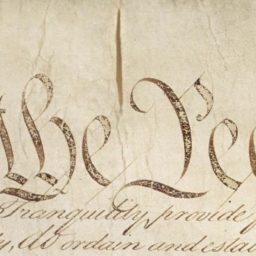 the Pe
Tranquility, provide f
ty, do ordain and esta